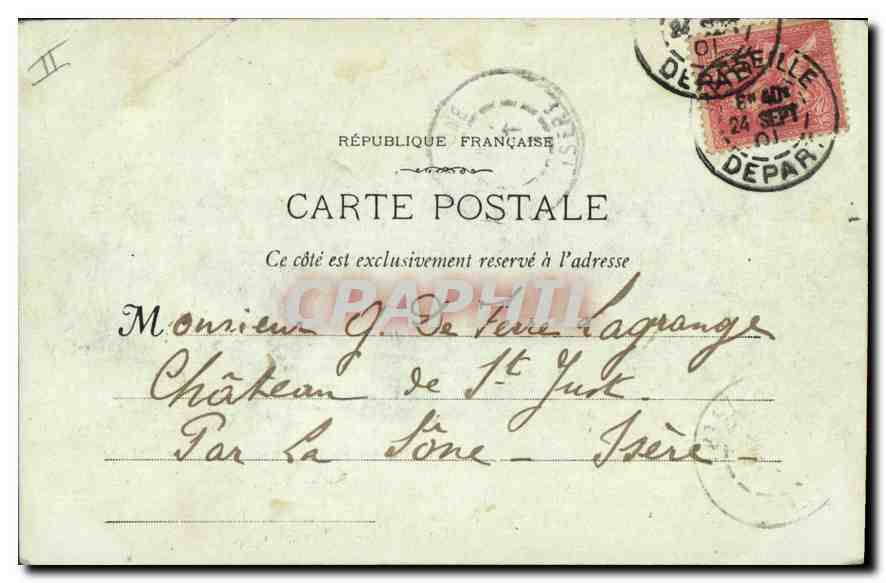 II
24 SEPT
01
DEPART
MARSEILLE
8H 40M
24 SEPT
01
DEPART
RÉPUBLIQUE FRANÇAISE
CARTE POSTALE
Ce côté est exclusivement reservé à l'adresse
CPAPHIL
Monsieur G. De Ferre Lagrange
Château de St Just.
Par La Sône - Isère -